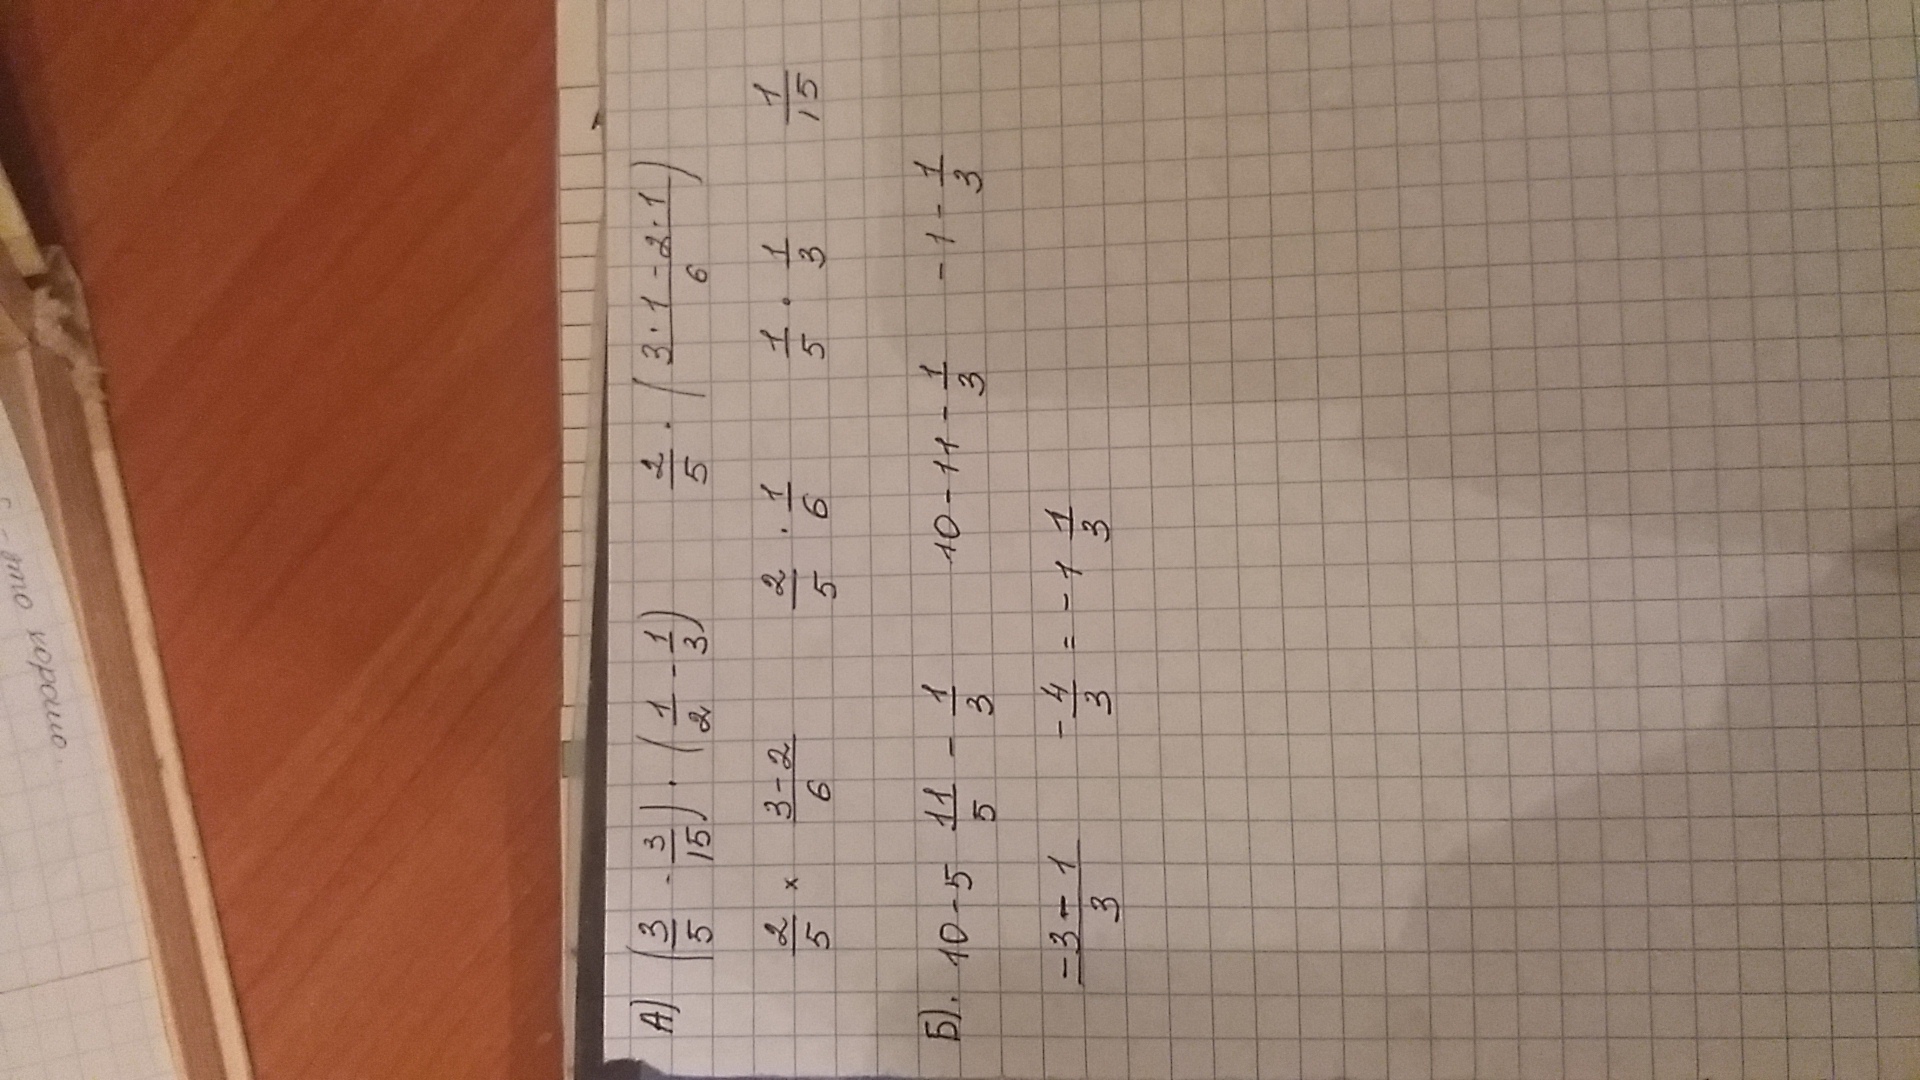 А) (3/5 - 3/15) · (1/2 - 1/3) 2/5 · (3·1-2·1/6)
2/5 × 3-2/6 2/5 · 1/6 1/5 · 1/3 1/15
Б). 10-5 11/5 - 1/3 10-11-1/3 -1-1/3
-3-1/3 -4/3 = -1 1/3
коротко.